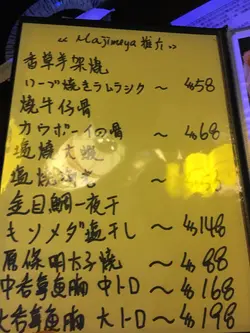 “ Majimeya 推介 ”
香草羊架燒
ハーブ焼きラムラック ～ 458
燒牛仔骨
カウボーイの骨 ～ 468
塩燒大蝦
塩焼
金目鯛一夜干
キンメダ塩干し ～ 4148
原條明太子燒 ～ 488
中吞拿魚胸 中トロ ～ 4168
大吞拿魚胸 大トロ ～ 4198